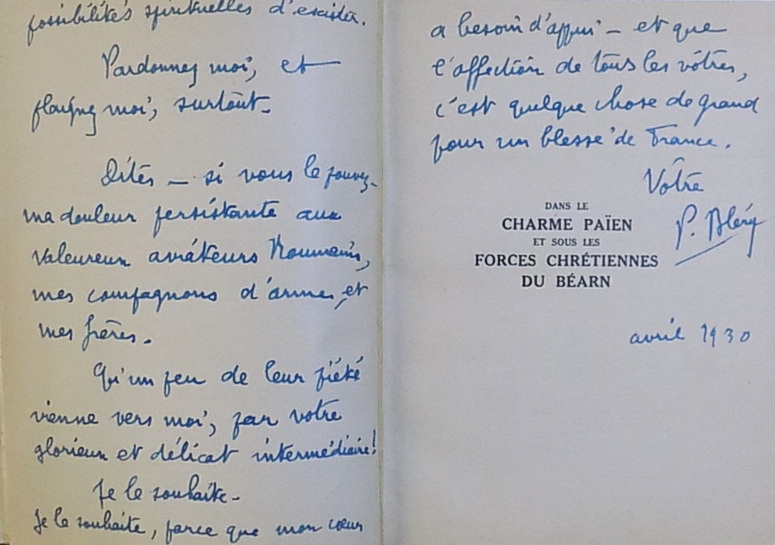 possibilités spirituelles d'exister.
Pardonnez moi, et
plaignez moi, surtout.
Dites — si vous le pouvez —
ma douleur persistante aux
valeureux aviateurs Roumains,
mes compagnons d'armes, et
mes frères.
Qu'un peu de leur piété
vienne vers moi, par votre
glorieux et délicat intermédiaire!
Je le souhaite.
Je le souhaite, parce que mon cœur
a besoin d'appui — et que
l'affection de tous les vôtres,
c'est quelque chose de grand
pour un blessé de France.
Votre
P. Bléry
DANS LE
CHARME PAÏEN
ET SOUS LES
FORCES CHRÉTIENNES
DU BÉARN
avril 1930